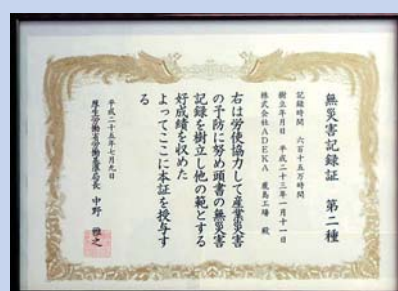 無災害記録証 第二種
記録時間 六百十五万時間
樹立年月日 平成二十三年一月十一日
株式会社ADEKA 鹿島工場 殿
右は労使協力して産業災害
の予防に努め頭書の無災害
記録を樹立し他の範とする
好成績を収めた
よってここに本証を授与す
る
平成二十五年七月九日
厚生労働省労働基準局長 中野 雅之